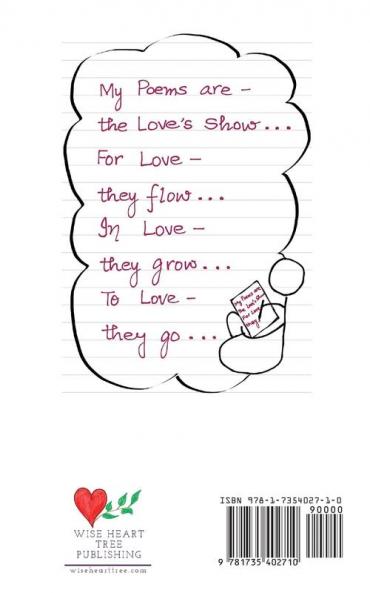 My Poems are –
the Love's Show...
For Love –
they flow...
In Love –
they grow...
To Love –
they go...
My Poems are
the Love's Show
For Love
they
WISE HEART
TREE
PUBLISHING
wisehearttree.com
ISBN 978-1-7354027-1-0
90000
9 781735 402710